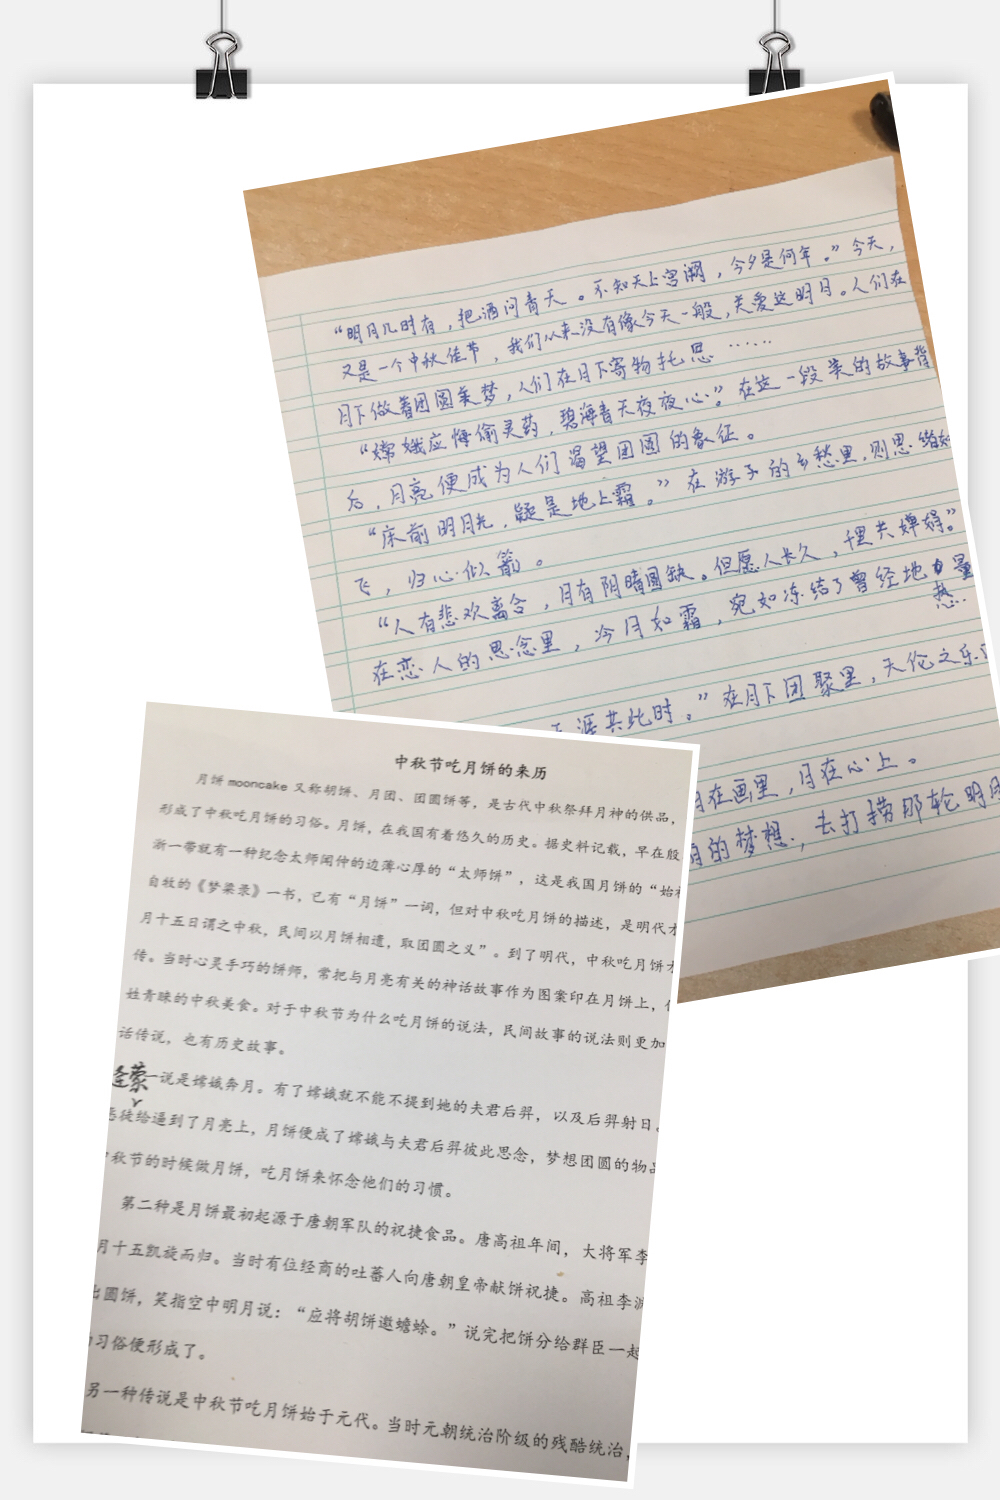 “明月几时有，把酒问青天。不知天上宫阙，今夕是何年。”今天，
又是一个中秋佳节，我们从来没有像今天一般，关爱这明月。人们在
月下做着团圆美梦，人们在月下寄物托思……
“嫦娥应悔偷灵药，碧海青天夜夜心”。在这一段美的故事背
后，月亮便成为人们渴望团圆的象征。
“床前明月光，疑是地上霜。”在游子的乡愁里，则思绪如
飞，归心似箭。
“人有悲欢离合，月有阴晴圆缺。但愿人长久，千里共婵娟。”
在恋人的思念里，今月如霜，宛如冻结了曾经地热量
涯共此时。”在月下团聚里，天伦之乐
在画里，月在心上。
的梦想，去打捞那轮明月
中秋节吃月饼的来历
月饼 mooncake 又称胡饼、月团、团圆饼等，是古代中秋祭拜月神的供品，
形成了中秋吃月饼的习俗。月饼，在我国有着悠久的历史。据史料记载，早在殷
浙一带就有一种纪念太师闻仲的边薄心厚的“太师饼”，这是我国月饼的“始祖
自牧的《梦梁录》一书，已有“月饼”一词，但对中秋吃月饼的描述，是明代才
月十五日谓之中秋，民间以月饼相遗，取团圆之义”。到了明代，中秋吃月饼才
传。当时心灵手巧的饼师，常把与月亮有关的神话故事作为图案印在月饼上，使
姓青睐的中秋美食。对于中秋节为什么吃月饼的说法，民间故事的说法则更加
话传说，也有历史故事。
逢蒙
一说是嫦娥奔月。有了嫦娥就不能不提到她的夫君后羿，以及后羿射日。
恶徒给逼到了月亮上，月饼便成了嫦娥与夫君后羿彼此思念，梦想团圆的物品
秋节的时候做月饼，吃月饼来怀念他们的习惯。
第二种是月饼最初起源于唐朝军队的祝捷食品。唐高祖年间，大将军李
月十五凯旋而归。当时有位经商的吐蕃人向唐朝皇帝献饼祝捷。高祖李渊
出圆饼，笑指空中明月说：“应将胡饼邀蟾蜍。”说完把饼分给群臣一起
习俗便形成了。
另一种传说是中秋节吃月饼始于元代。当时元朝统治阶级的残酷统治，